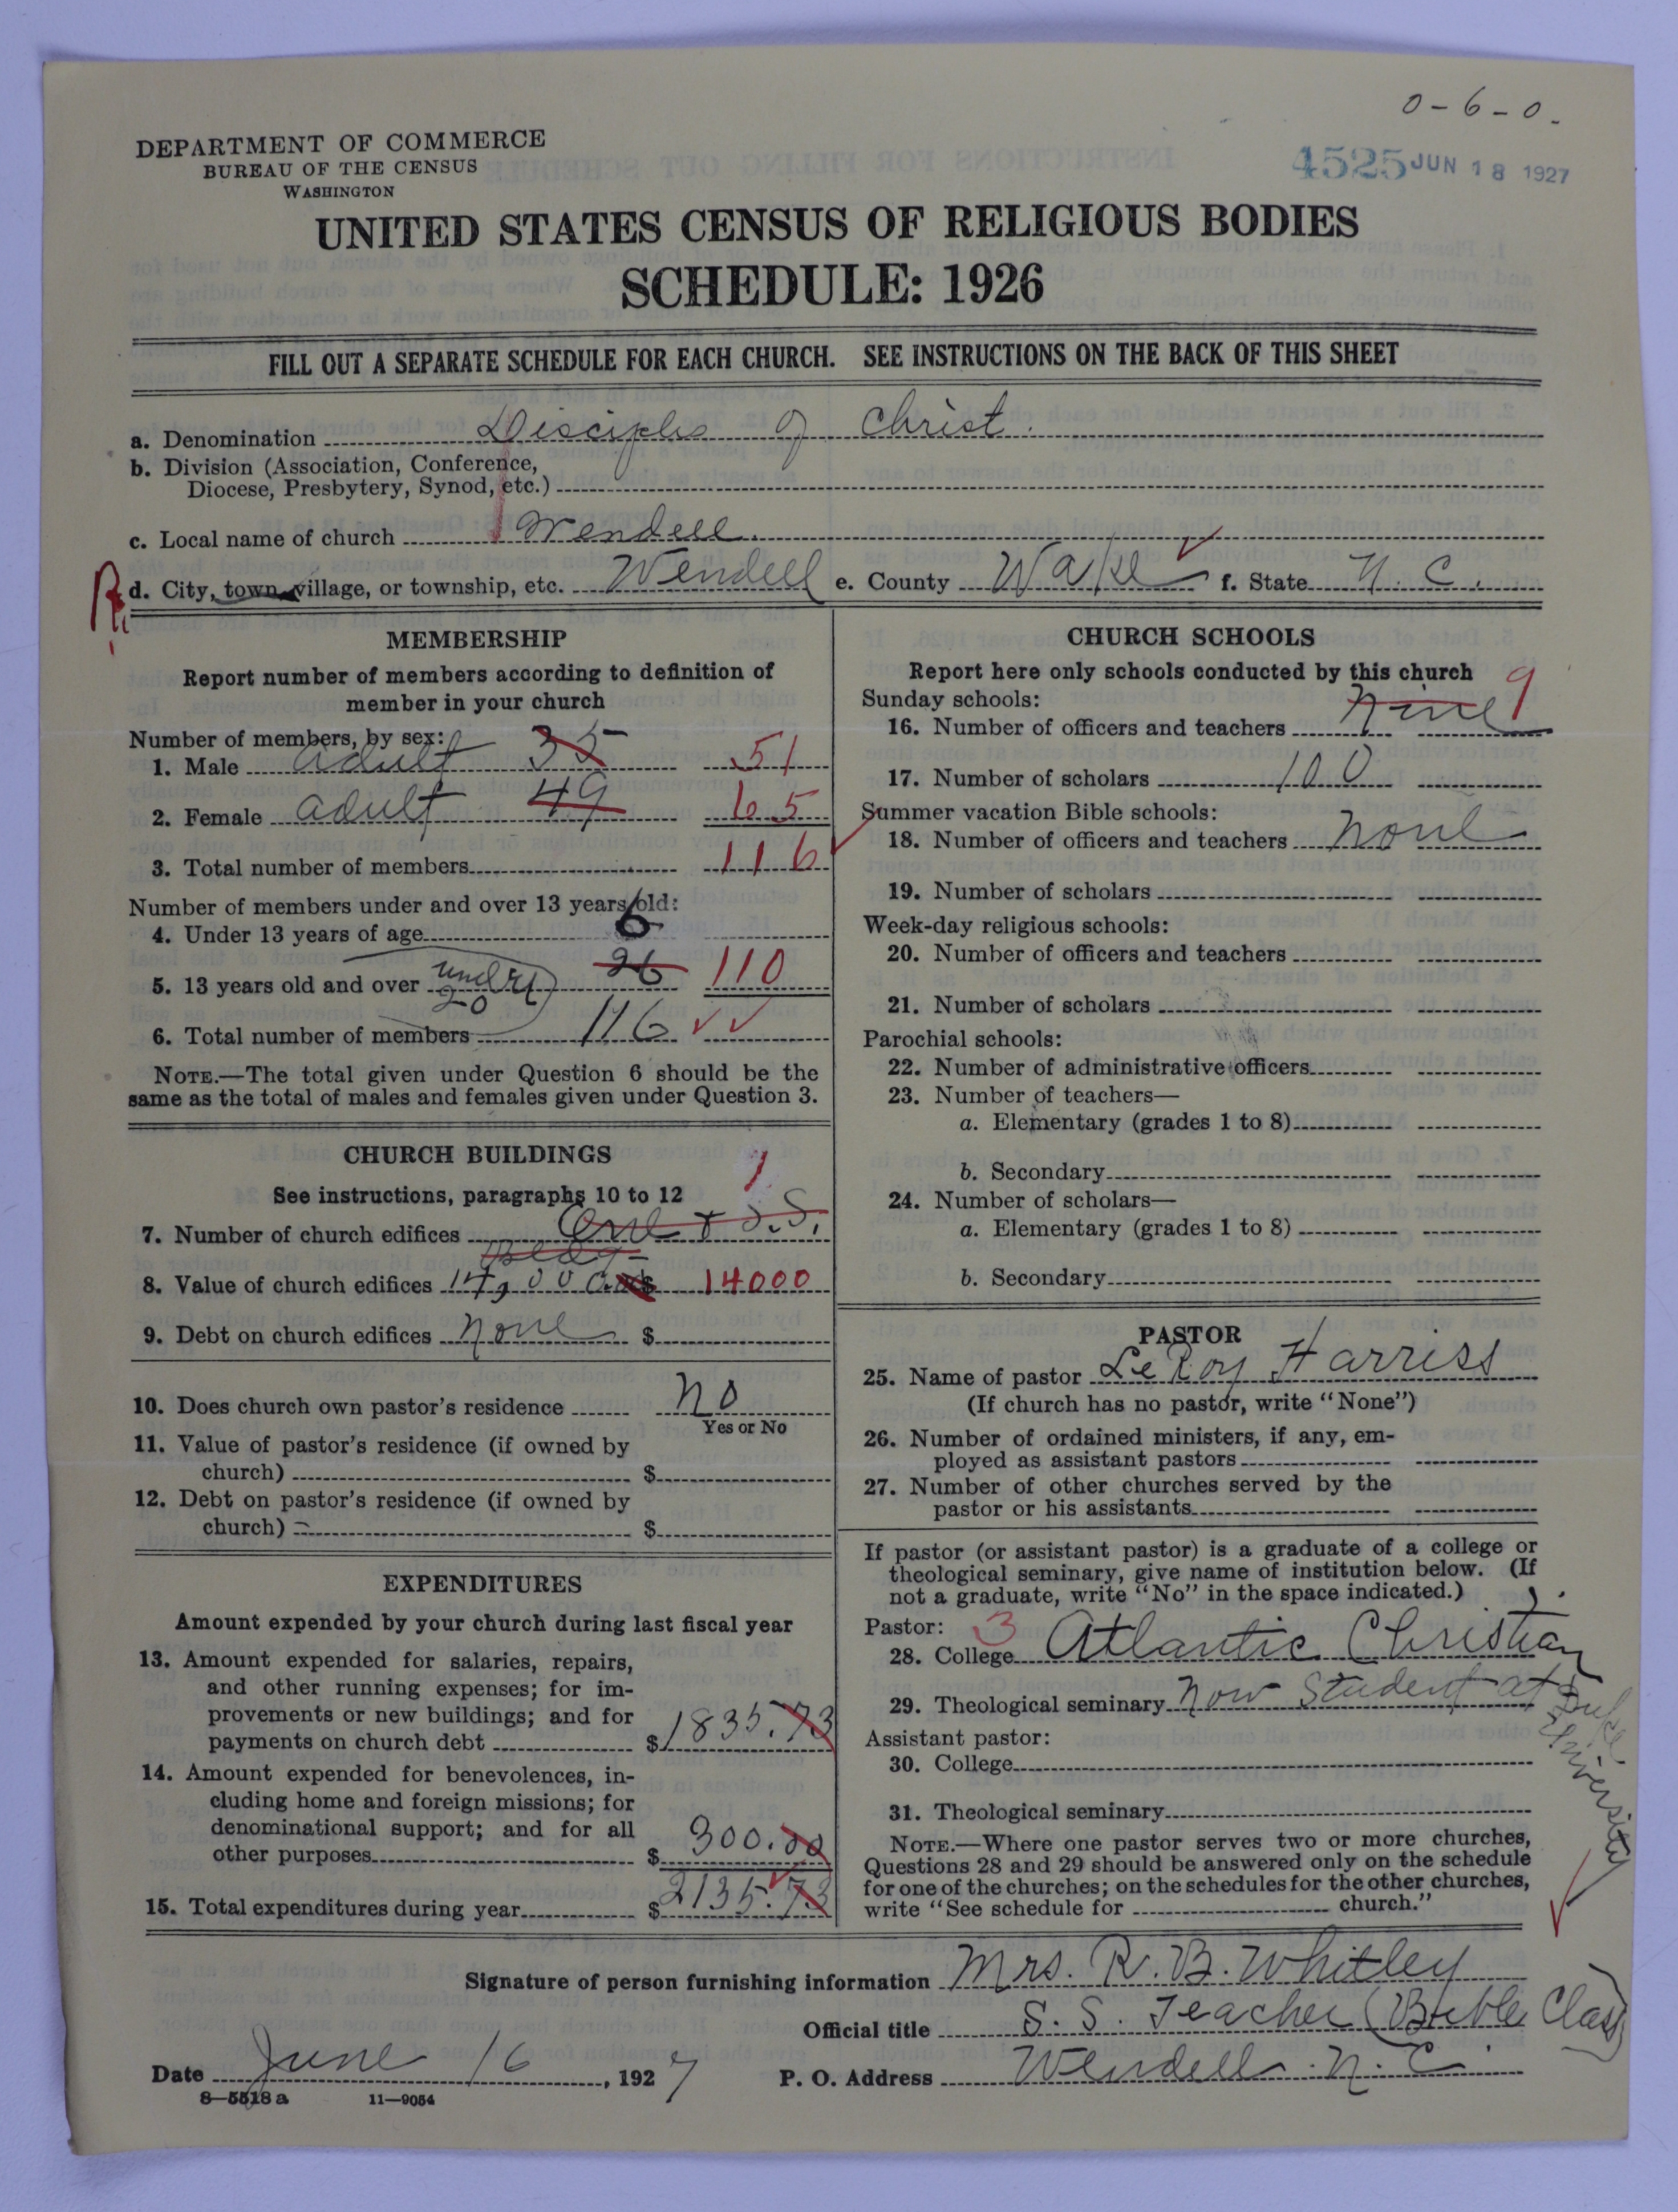 0-6-0.
4525 JUN 18 1927
DEPARTMENT OF COMMERCE
BUREAU OF THE CENSUS
WASHINGTON
UNITED STATES CENSUS OF RELIGIOUS BODIES
SCHEDULE: 1926
FILL OUT A SEPARATE SCHEDULE FOR EACH CHURCH. SEE INSTRUCTIONS ON THE BACK OF THIS SHEET
a. Denomination Disciples of Christ.
b. Division (Association, Conference,
Diocese, Presbytery, Synod, etc.)
c. Local name of church Wendell
d. City, town, village, or township, etc. Wendell e. County Wake f. State N. C.
MEMBERSHIP
Report number of members according to definition of
member in your church
Number of members, by sex:
1. Male adult 35 51
2. Female adult 49 65
3. Total number of members 116
Number of members under and over 13 years old:
4. Under 13 years of age 6
5. 13 years old and over under 20 26 110
6. Total number of members 116
NOTE.—The total given under Question 6 should be the
same as the total of males and females given under Question 3.
CHURCH BUILDINGS
See instructions, paragraphs 10 to 12
1
7. Number of church edifices One + S.S.
Bldg
8. Value of church edifices 14,000.00 $ 14000
9. Debt on church edifices none $
10. Does church own pastor's residence no
Yes or No
11. Value of pastor's residence (if owned by
church) $
12. Debt on pastor's residence (if owned by
church) $
EXPENDITURES
Amount expended by your church during last fiscal year
13. Amount expended for salaries, repairs,
and other running expenses; for im-
provements or new buildings; and for
payments on church debt $1835.73
14. Amount expended for benevolences, in-
cluding home and foreign missions; for
denominational support; and for all
other purposes $ 300.00
15. Total expenditures during year $2135.73
CHURCH SCHOOLS
Report here only schools conducted by this church
Sunday schools:
16. Number of officers and teachers nine 9
17. Number of scholars 100
Summer vacation Bible schools:
18. Number of officers and teachers none
19. Number of scholars
Week-day religious schools:
20. Number of officers and teachers
21. Number of scholars
Parochial schools:
22. Number of administrative officers
23. Number of teachers—
a. Elementary (grades 1 to 8)
b. Secondary
24. Number of scholars—
a. Elementary (grades 1 to 8)
b. Secondary
PASTOR
25. Name of pastor LeRoy Harriss
(If church has no pastor, write "None")
26. Number of ordained ministers, if any, em-
ployed as assistant pastors
27. Number of other churches served by the
pastor or his assistants
If pastor (or assistant pastor) is a graduate of a college or
theological seminary, give name of institution below. (If
not a graduate, write "No" in the space indicated.)
Pastor: 3
28. College Atlantic Christian
29. Theological seminary now Student at Duke University
Assistant pastor:
30. College
31. Theological seminary
NOTE.—Where one pastor serves two or more churches,
Questions 28 and 29 should be answered only on the schedule
for one of the churches; on the schedules for the other churches,
write "See schedule for church."
Signature of person furnishing information Mrs. R. B. Whitley
Official title S. S. Teacher (Bible Class)
Date June 16, 1927 P. O. Address Wendell N. C.
8—5518a 11—9054